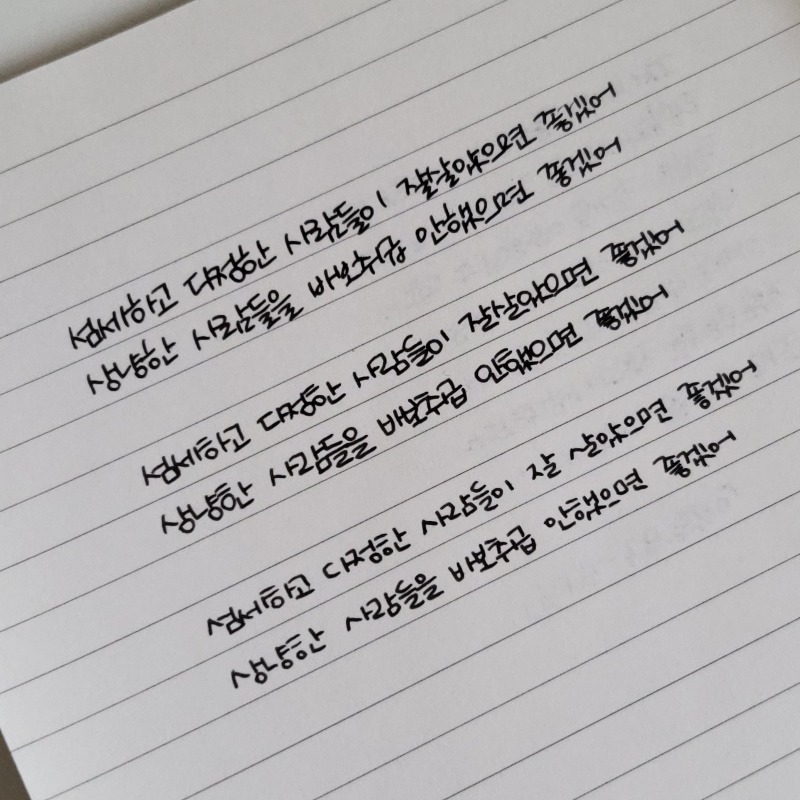 섬세하고 다정한 사람들이 잘살았으면 좋겠어
상냥한 사람들을 바보취급 안했으면 좋겠어
섬세하고 다정한 사람들이 잘살았으면 좋겠어
상냥한 사람들을 바보취급 안했으면 좋겠어
섬세하고 다정한 사람들이 잘 살았으면 좋겠어
상냥한 사람들을 바보취급 안했으면 좋겠어